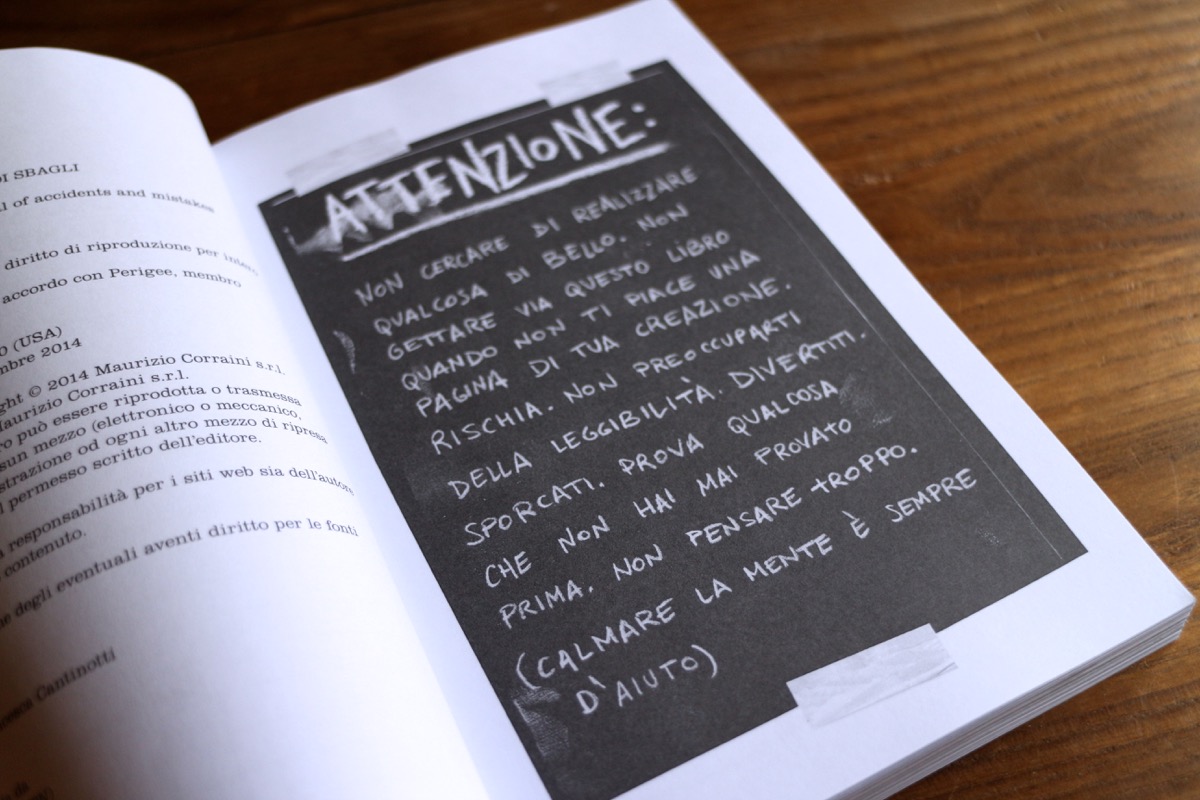 DI SBAGLI
of accidents and mistakes
diritto di riproduzione per intero
accordo con Perigee, membro
(USA)
mbre 2014
ght © 2014 Maurizio Corraini s.r.l.
Maurizio Corraini s.r.l.
ro può essere riprodotta o trasmessa
sun mezzo (elettronico o meccanico,
strazione od ogni altro mezzo di ripresa
l permesso scritto dell'editore.
responsabilità per i siti web sia dell'autore
contenuto.
ne degli eventuali aventi diritto per le fonti
Cantinotti
ATTENZIONE:
NON CERCARE DI REALIZZARE
QUALCOSA DI BELLO. NON
GETTARE VIA QUESTO LIBRO
QUANDO NON TI PIACE UNA
PAGINA DI TUA CREAZIONE.
RISCHIA. NON PREOCCUPARTI
DELLA LEGGIBILITÀ. DIVERTITI.
SPORCATI. PROVA QUALCOSA
CHE NON HAI MAI PROVATO
PRIMA. NON PENSARE tROPPO.
(CALMARE LA MENTE È SEMPRE
D'AIUTO)